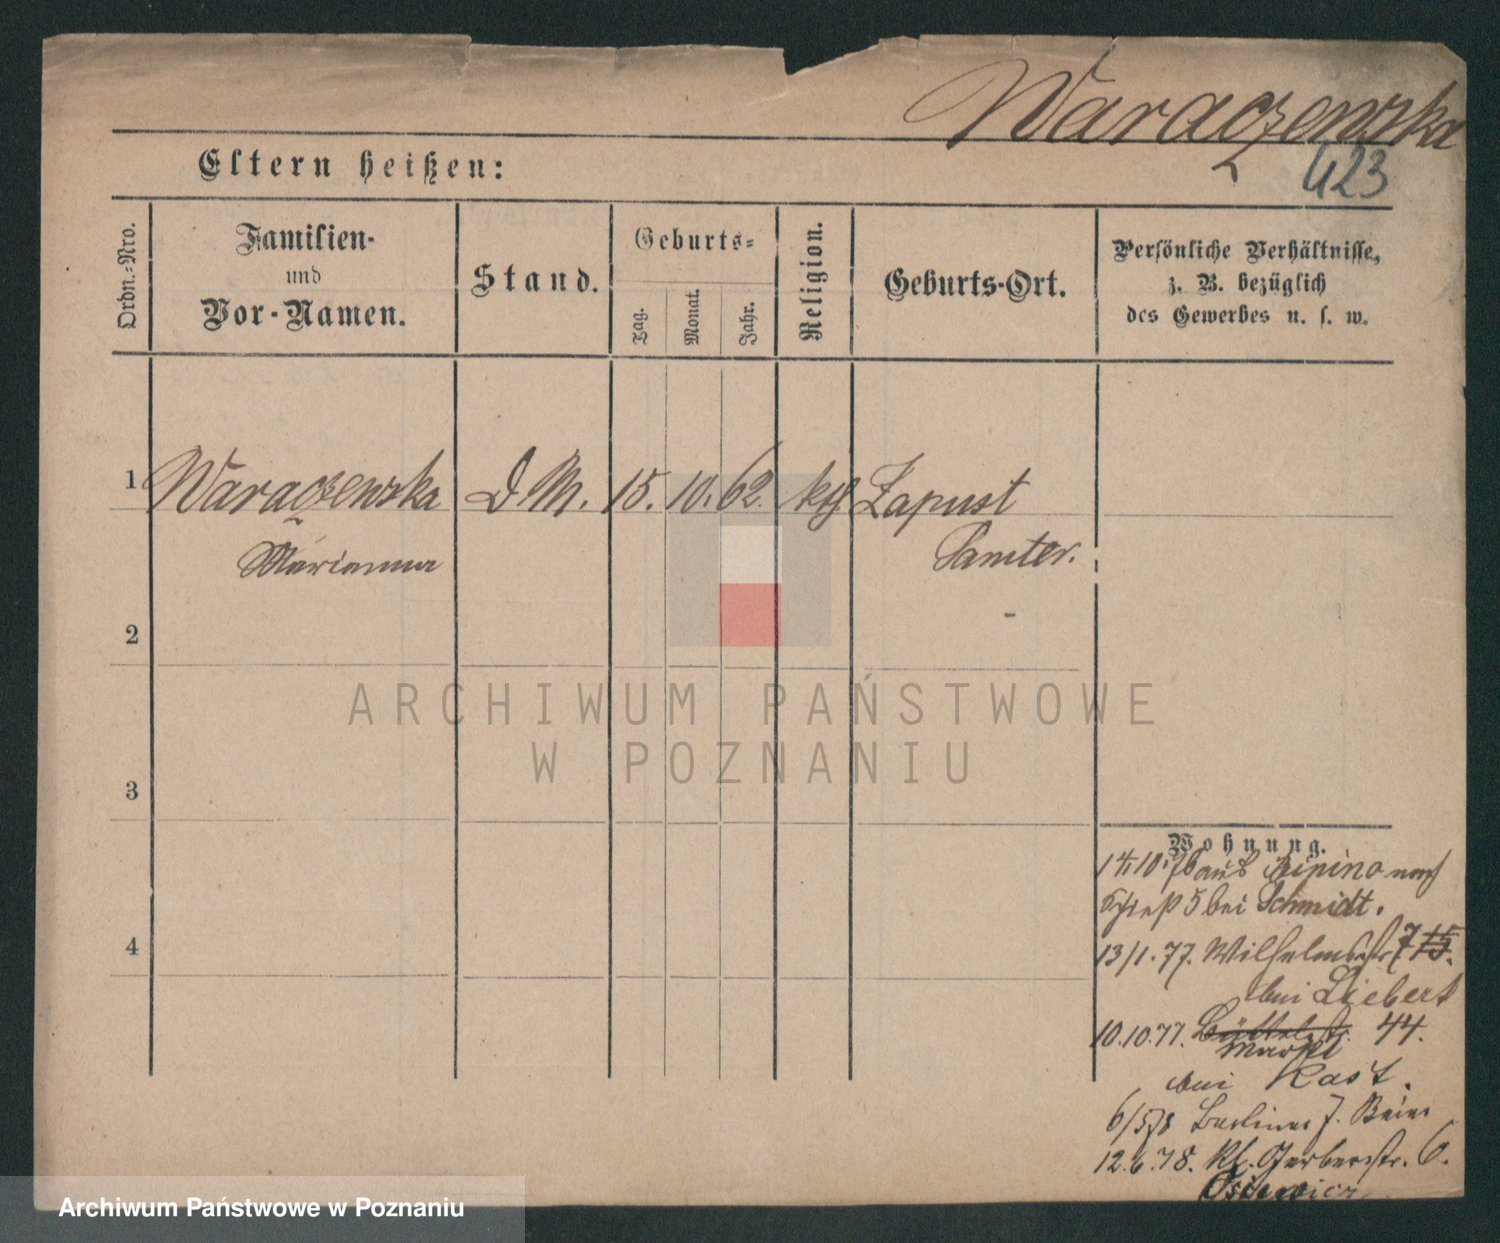 Waraczewska
423
Eltern heißen:
Ordn.-Nro.
Familien-
und
Vor-Namen.
Stand.
Geburts-
Tag.
Monat.
Jahr.
Religion.
Geburts-Ort.
Persönliche Verhältnisse,
z. B. bezüglich
des Gewerbes u. s. w.
1 Waraczewska D. M. 15. 10. 62. kth Zapust
Marianna Samter.
2
3
4
ARCHIWUM PAŃSTWOWE
W POZNANIU
Wohnung.
14/10. 76 aus nach
5 bei Schmidt.
13/1. 77. Wilhelmstr 7 15.
bei Liebert
10.10.77. Büttelstr. 44.
Markt
bei Rast.
6/5 78 Berliner 7. Beier
12.6.78. Kl. Gerberstr. 6.
Archiwum Państwowe w Poznaniu